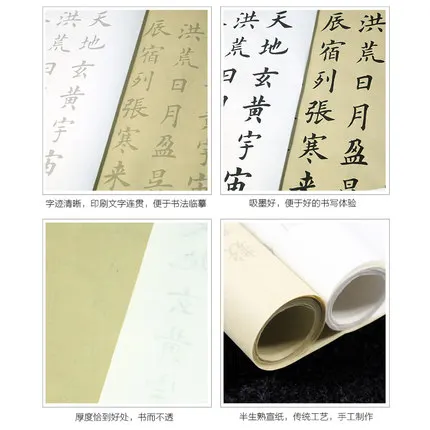 洪荒日月盈
辰宿列張寒来
天地玄黄宇宙
洪荒日
字迹清晰，印刷文字连贯，便于书法临摹
洪荒日月盈
辰宿列張寒来
天地玄黄宇宙
洪荒日
吸墨好，便于好的书写体验
地玄黄
厚度恰到好处，书而不透
半生熟宣纸，传统工艺，手工制作